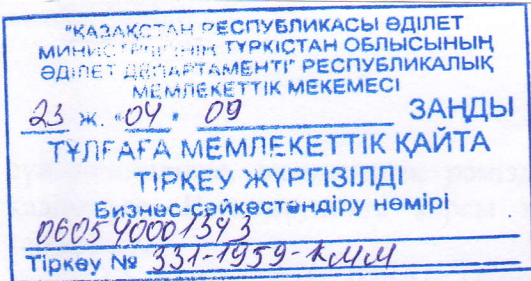 "ҚАЗАҚСТАН РЕСПУБЛИКАСЫ ӘДІЛЕТ
МИНИСТРЛІГІНІҢ ТҮРКІСТАН ОБЛЫСЫНЫҢ
ӘДІЛЕТ ДЕПАРТАМЕНТІ" РЕСПУБЛИКАЛЫҚ
МЕМЛЕКЕТТІК МЕКЕМЕСІ
23 ж. «04» 09 ЗАҢДЫ
ТҰЛҒАҒА МЕМЛЕКЕТТІК ҚАЙТА
ТІРКЕУ ЖҮРГІЗІЛДІ
Бизнес-сәйкестендіру нөмірі
060540001343
Тіркеу № 331-1959-КММ